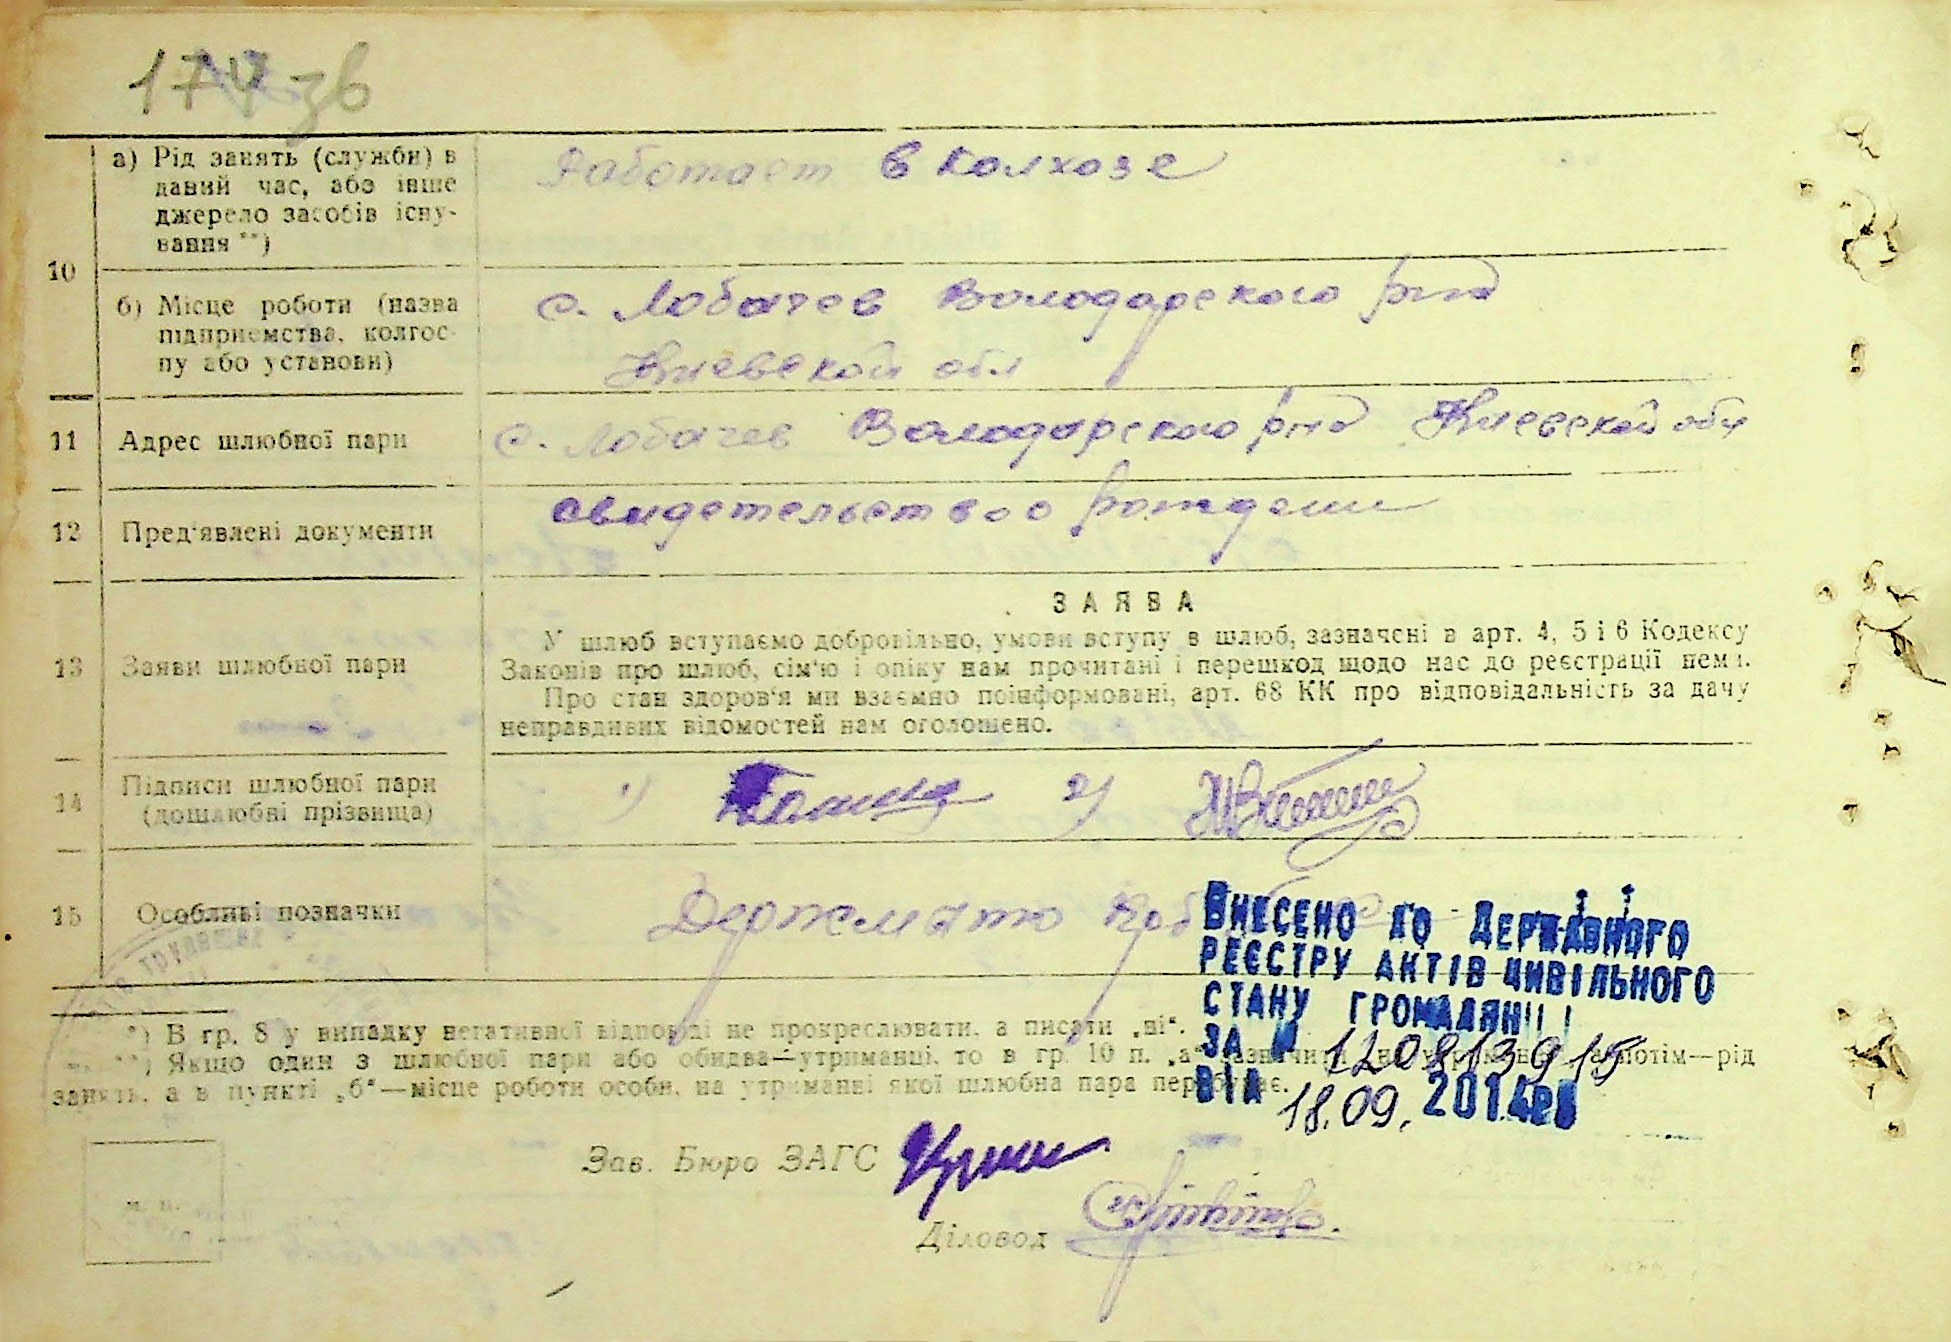 174 зв
а) Рід занять (служби) в
даний час, або інше
джерело засобів існу-
вання **)
Работает в колхозе
10
б) Місце роботи (назва
підприємства, колгос-
пу або установи)
с. Лобачев Володарского р-на
Киевской обл
11
Адрес шлюбної пари
с. Лобачев Володарского р-на Киевской обл
12
Пред'явлені документи
свидетельство о рождении
ЗАЯВА
13
Заяви шлюбної пари
У шлюб вступаємо добровільно, умови вступу в шлюб, зазначені в арт. 4, 5 і 6 Кодексу
Законів про шлюб, сім'ю і опіку нам прочитані і перешкод щодо нас до реєстрації нема.
Про стан здоров'я ми взаємно поінформовані, арт. 68 КК про відповідальність за дачу
неправдивих відомостей нам оголошено.
14
Підписи шлюбної пари
(дошлюбні прізвища)
1) 2)
15
Особливі позначки
Держмито
ВНЕСЕНО ДО ДЕРЖАВНОГО
РЕЄСТРУ АКТІВ ЦИВІЛЬНОГО
СТАНУ ГРОМАДЯН
ЗА № 120813915
ВІД 18.09. 2014
*) В гр. 8 у випадку негативної відповіді не прокреслювати, а писати „ні“.
**) Якщо один з шлюбної пари або обидва—утриманці, то в гр. 10 п. „а“ зазначити на утриманні, а потім—рід
занять, а в пункті „б“—місце роботи особи, на утриманні якої шлюбна пара перебуває.
Зав. Бюро ЗАГС
Діловод
м. п.